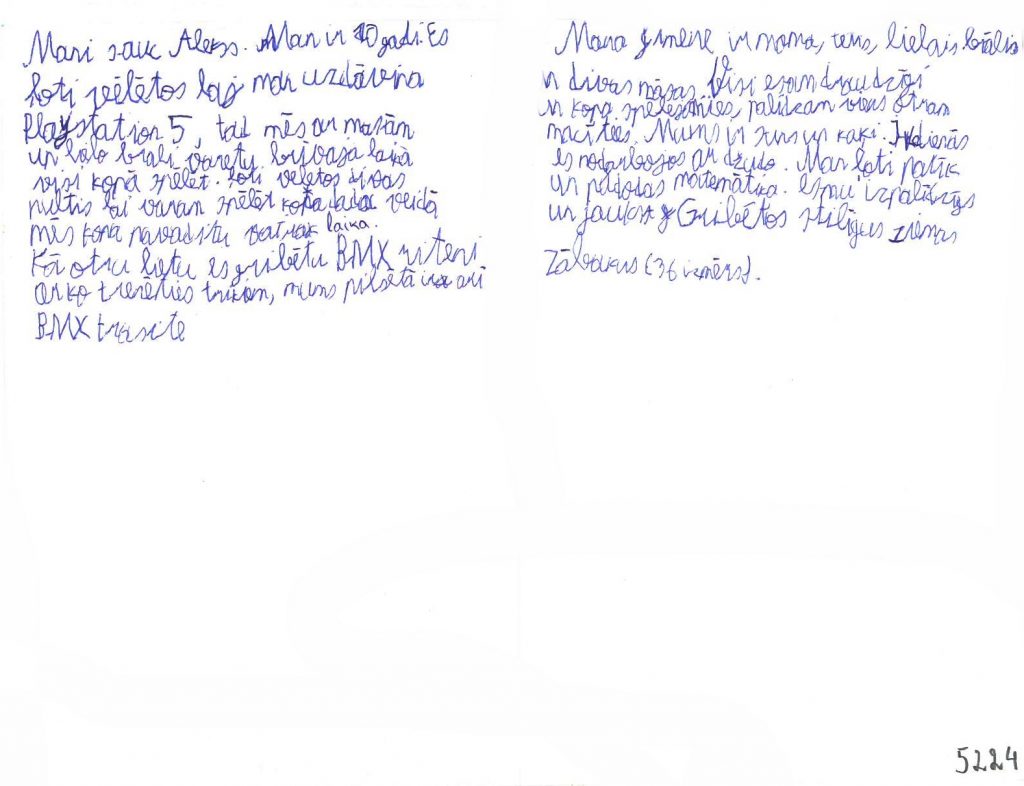 Mani sauc Alekss. Man ir 10 gadi. Es
ļoti vēlētos lai man uzdāvina
Playstation 5, tad mēs ar masām
un lielo brāli varētu brīvajā laikā
visi kopā spēlēt. Ļoti vēlētos divas
pultis lai varam spēlēt kopā tādā veidā
mēs kopā pavadītu vairāk laika.
Kā otru lietu es gribētu BMX riteni
ar ko trenēties trikiem, mums pilsētā ir arī
BMX trasīte
Mana ģimene ir mama, tētis, lielais brālis
un divas māsas. Visi esam draudzīgi
un kopā spēlējamies, palīdzam viens otram
mācīties. Mums ir suns un kaķi. Ikdienās
es nodarbojos ar džudo. Man ļoti patīk
un padodas matemātika. Esmu izpalīdzīgs
un jauks. Gribētos stilīgus ziemas
Zābakus (36 izmērs).
5224